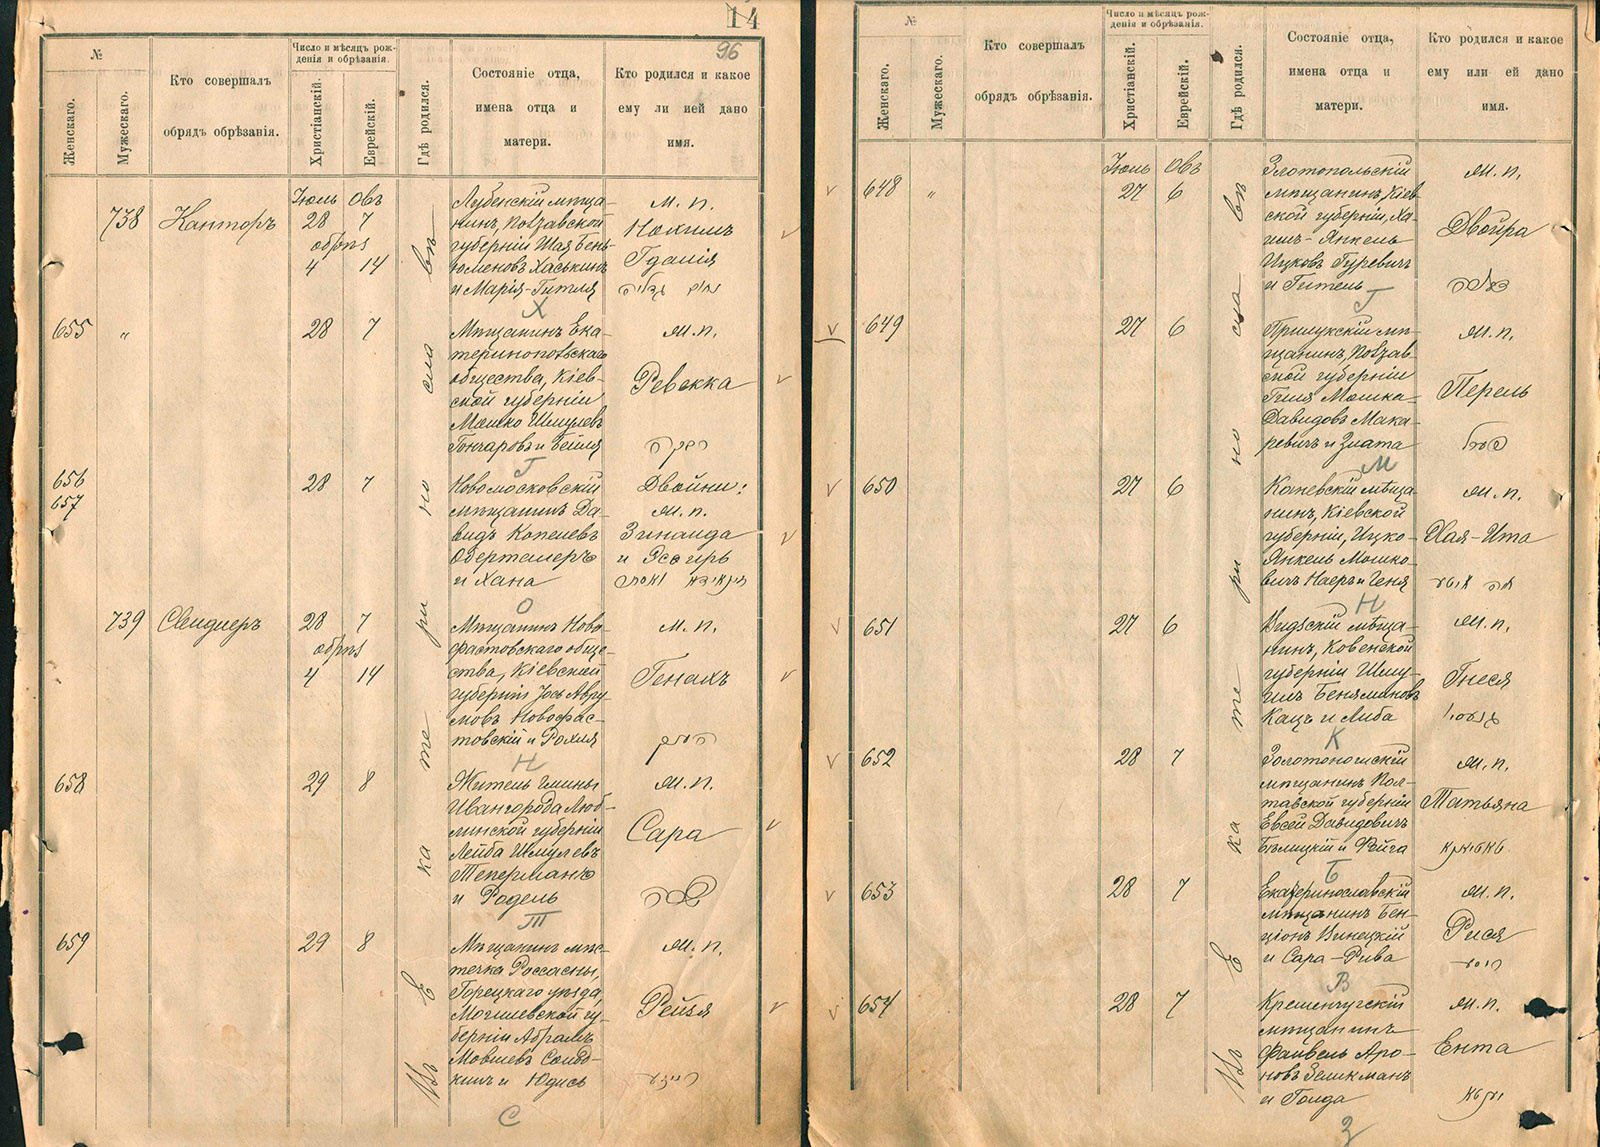 14
96
№
Женскаго.
Мужескаго.
Кто совершалъ
обрядъ обрѣзанія.
Число и мѣсяцъ рож-
денія и обрѣзанія.
Христіанскій.
Еврейскій.
Гдѣ родился.
Состояніе отца,
имена отца и
матери.
Кто родился и какое
ему ли ией дано
имя.
Въ Екатеринославѣ
738 Канторъ
Іюль Овъ
28 7
обрѣз
4 14
Лубенскій мѣща-
нинъ, Полтавской
губерніи Шая Бень-
юменовъ Хаськинъ
и Марія-Гитля
Х
м. п.
Нохимъ
Гдалія
655 „
28 7
Мѣщанинъ Ека-
теринопольскаго
общества, Кіев-
ской губерніи
Мошко Шмулевъ
Гончаровъ и Бейля
Г
м. п.
Ревекка
רבקה
656
657
28 7
Новомосковскій
мѣщанинъ Да-
видъ Копелевъ
и Хана
О
Двойни:
м. п.
Зинаида
и Эсѳирь
739 Свидлеръ
28 7
обрѣз
4 14
Мѣщанинъ Ново-
фастовскаго обще-
ства, Кіевской
губерніи Іось Авру-
мовъ Новофас-
товскій и Рохля
Н
м. п.
Генахъ
658
29 8
Житель гмины
Ивангорода Люб-
линской губерніи
Лейба Шмулевъ
Теперманъ
и Родель
Т
м. п.
Сара
שרה
659
29 8
Мѣщанинъ мѣс-
течка Россасны,
Горецкаго уѣзда,
Могилевской гу-
берніи Абрамъ
Мовшевъ
и Юдись
С
м. п.
Рейзя
№
Женскаго.
Мужескаго.
Кто совершалъ
обрядъ обрѣзанія.
Число и мѣсяцъ рож-
денія и обрѣзанія.
Христіанскій.
Еврейскій.
Гдѣ родился.
Состояніе отца,
имена отца и
матери.
Кто родился и какое
ему или ей дано
имя.
Въ Екатеринославѣ
648 „
Іюль Овъ
27 6
Златопольскій
мѣщанинъ, Кіев-
ской губерніи, Ха-
имъ-Янкель
Ицковъ Гуревичъ
и Гитель
Г
м. п.
Двойра
649
27 6
Прилукскій мѣ-
щанинъ, Полтав-
ской губерніи
Гиля Мошка-
Давидовъ Мака-
ревичъ и Злата
М
м. п.
Перель
650
27 6
Каневскій мѣща-
нинъ, Кіевской
губерніи, Ицко-
Янкель Мошко-
вичъ Наеръ и Геня
Н
м. п.
Хая-Ита
651
27 6
Видзскій мѣща-
нинъ, Ковенской
губерніи Шму-
илъ Беняминовъ
Кацъ и Либа
К
м. п.
Гнеся
652
28 7
Золотоношскій
мѣщанинъ Пол-
тавской губерніи
Евсей Давидовичъ
Бѣлицкій и Фейга
Б
м. п.
Татьяна
653
28 7
Екатеринославскій
мѣщанинъ Бен-
ціонъ Винецкій
и Сара-Рива
В
м. п.
Рися
654
28 7
Кременчугскій
мѣщанинъ
Файвель Аро-
новъ Зеликманъ
и Голда
З
м. п.
Ента